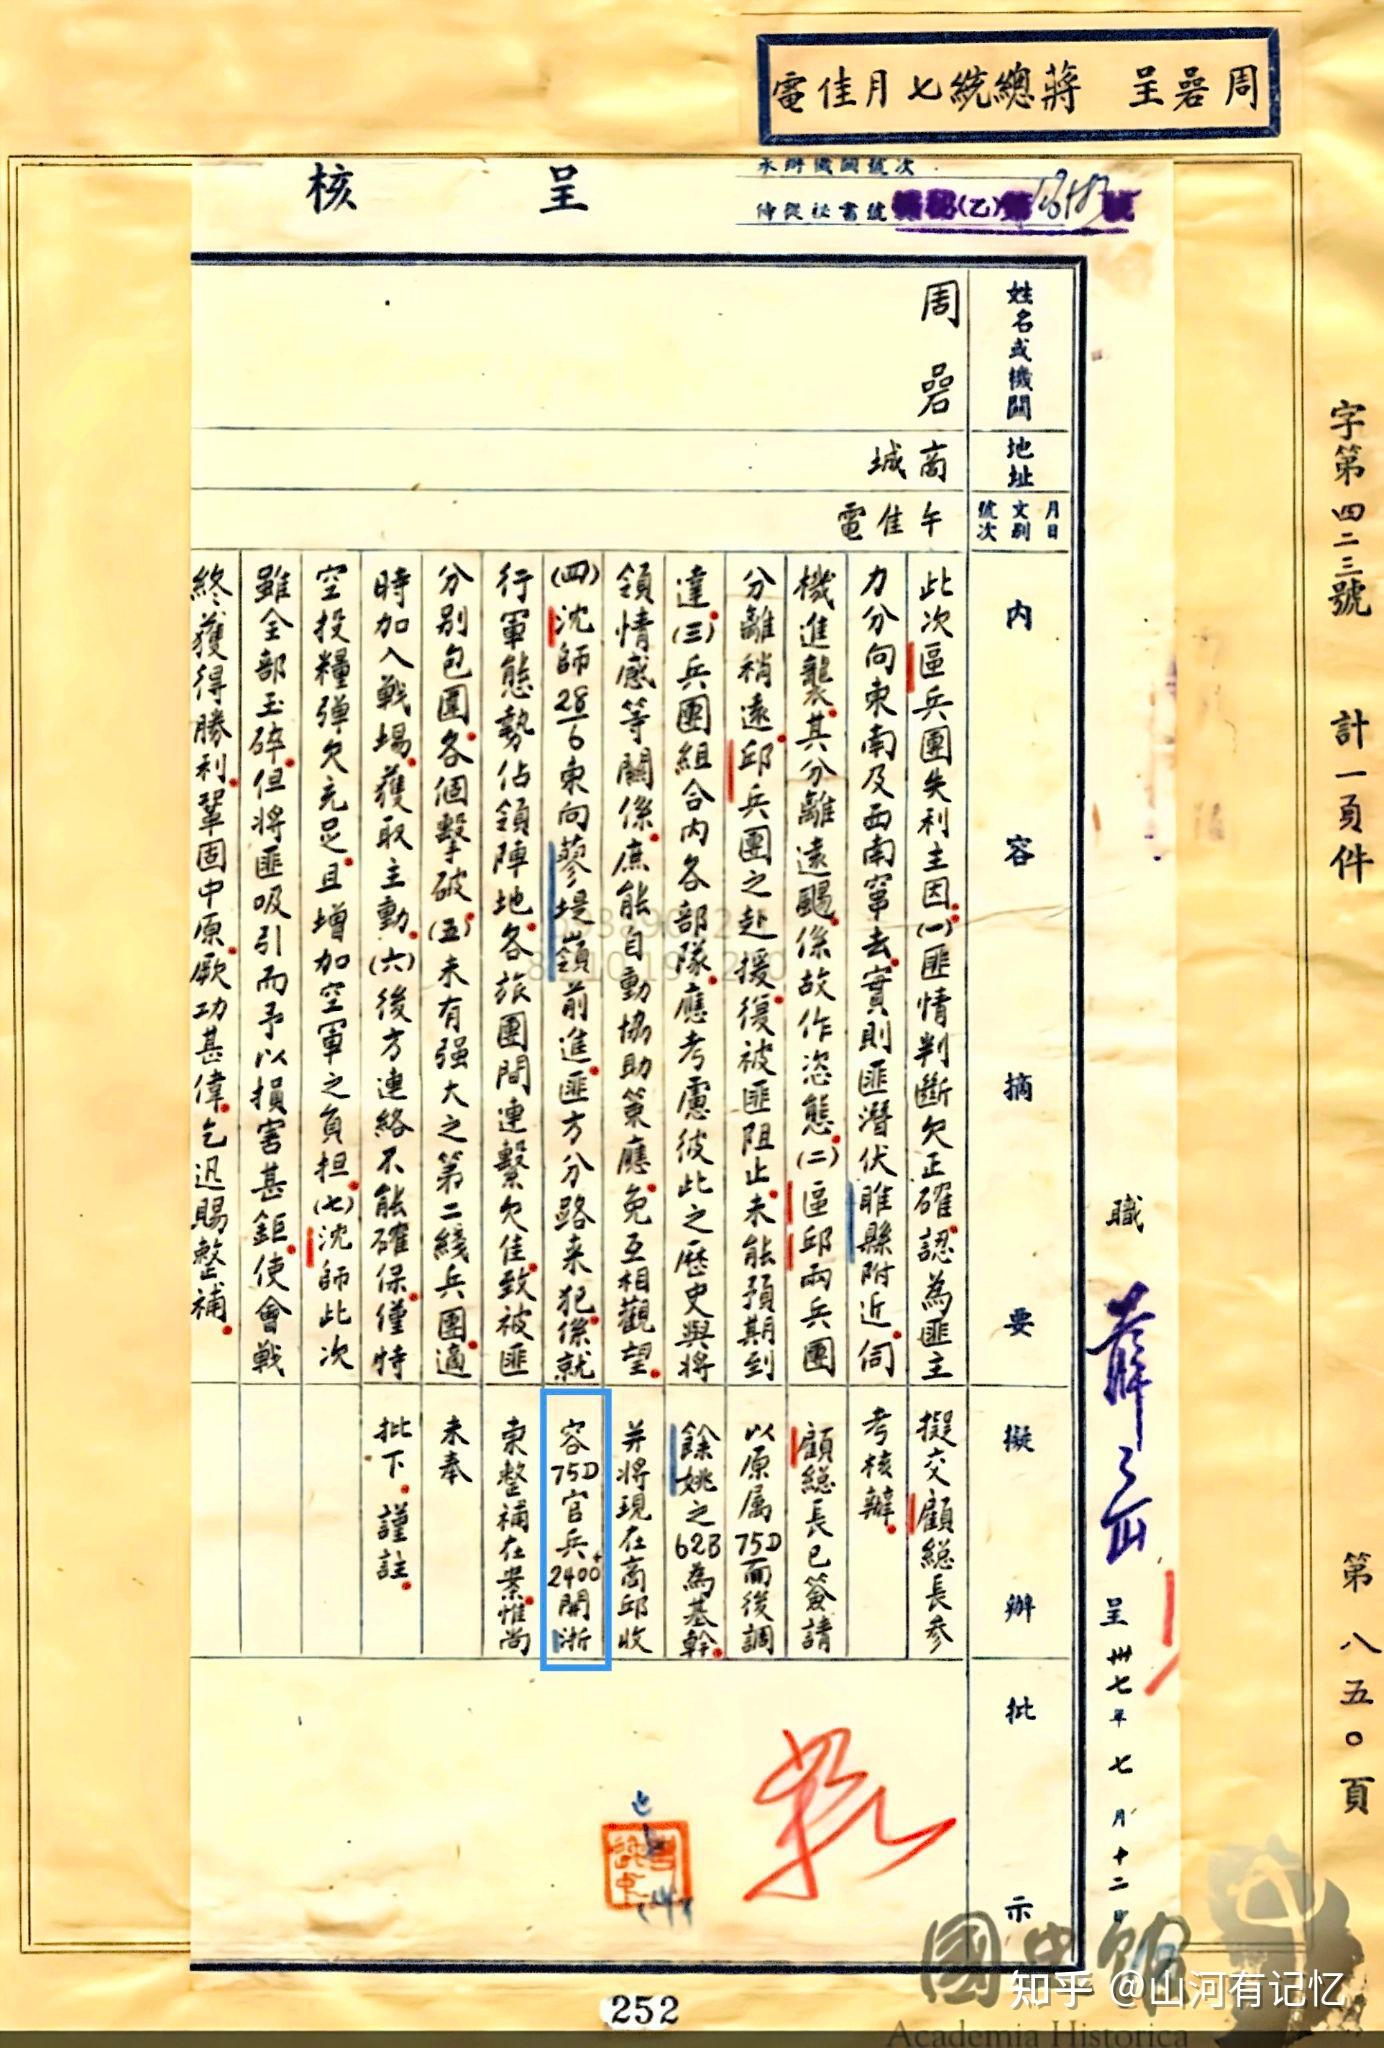 周碞呈 蔣總統七月佳電
呈核
承辦機關號次
侍從秘書號
(乙)
姓名或機關
周碞
地址
商城
月日
文別
號次
午佳電
內容摘要
此次區兵團失利主因(一)匪情判斷欠正確認為匪主
力分向東南及西南竄去實則匪潛伏睢縣附近伺
機進襲其分離遠颺係故作恣態(二)區邱兩兵團
分離稍遠邱兵團之赴援復被匪阻止未能預期到
達(三)兵團組合內各部隊應考慮彼此之歷史與將
領情感等關係庶能自動協助策應免互相觀望
(四)沈師28/6東向蓼堤嶺前進匪方分路來犯係就
行軍態勢佔領陣地各旅團間連繫欠佳致被匪
分別包圍各個擊破(五)未有强大之第二綫兵團適
時加入戰場獲取主動(六)後方連絡不能確保僅恃
空投糧弹欠充足且增加空軍之負担(七)沈師此次
雖全部玉碎但將匪吸引而予以損害甚鉅使會戰
終獲得勝利鞏固中原厥功甚偉乞迅賜整補
擬辦
擬交顧總長參
考核辦
顧總長已簽請
以原属75D而後調
餘姚之62B為基幹
并將現在商邱收
容75D官兵2400+開浙
東整補在案惟尚
未奉
批下謹註
批示
職
呈 卅七年七月十二日
字第四二三號 計一頁件 第八五〇頁
252
國史館
Academia Historica
知乎 @山河有记忆